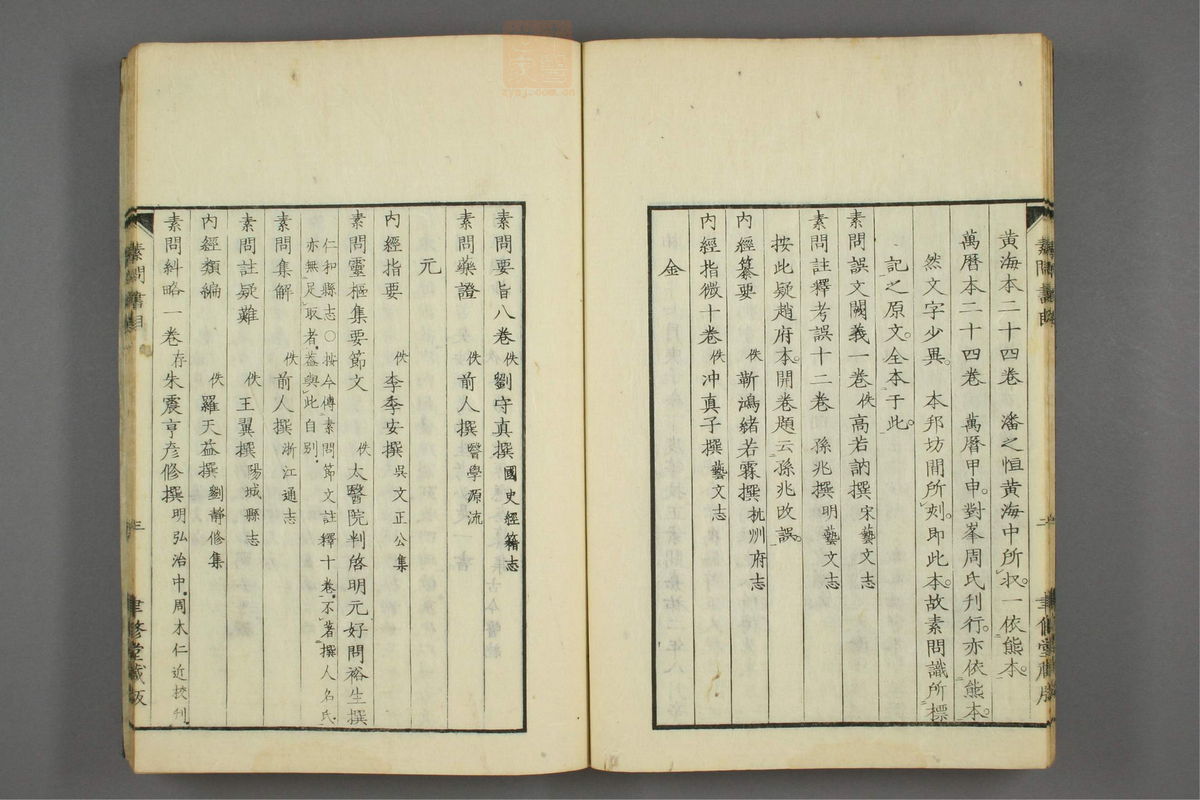 黃海本二十四卷　潘之恒黃海中所收一依熊本。
萬曆本二十四卷　萬曆甲申。對峯周氏刊行。亦依熊本。
然文字少異。　本邦坊間所刻。卽此本。故素問識所標
記之原文。全本于此。
素問誤文闕義一卷　佚　高若訥撰　宋藝文志
素問註釋考誤十二卷　孫兆撰　明藝文志
按此疑趙府本。開卷題云孫兆改誤。
內經纂要　佚　靳鴻緒若霖撰　杭州府志
內經指微十卷　佚　冲真子撰　藝文志
金
素問要旨八卷　佚　劉守真撰　國史經籍志
素問藥證　佚　前人撰　醫學源流
元
內經指要　佚　李季安撰　吳文正公集
素問靈樞集要節文　佚　太醫院判啓明元好問裕生撰
仁和縣志○按今傳素問節文註釋十卷。不著撰人名氏。
亦無足取者。蓋與此自別。
素問集解　佚　前人撰　浙江通志
素問註疑難　佚　王翼撰　陽城縣志
內經類編　佚　羅天益撰　劉靜修集
素問糾略一卷　存　朱震亨彥修撰　明弘治中。周木仁近挍刊。
素問書目　三　聿修堂藏版
zysj.com.cn